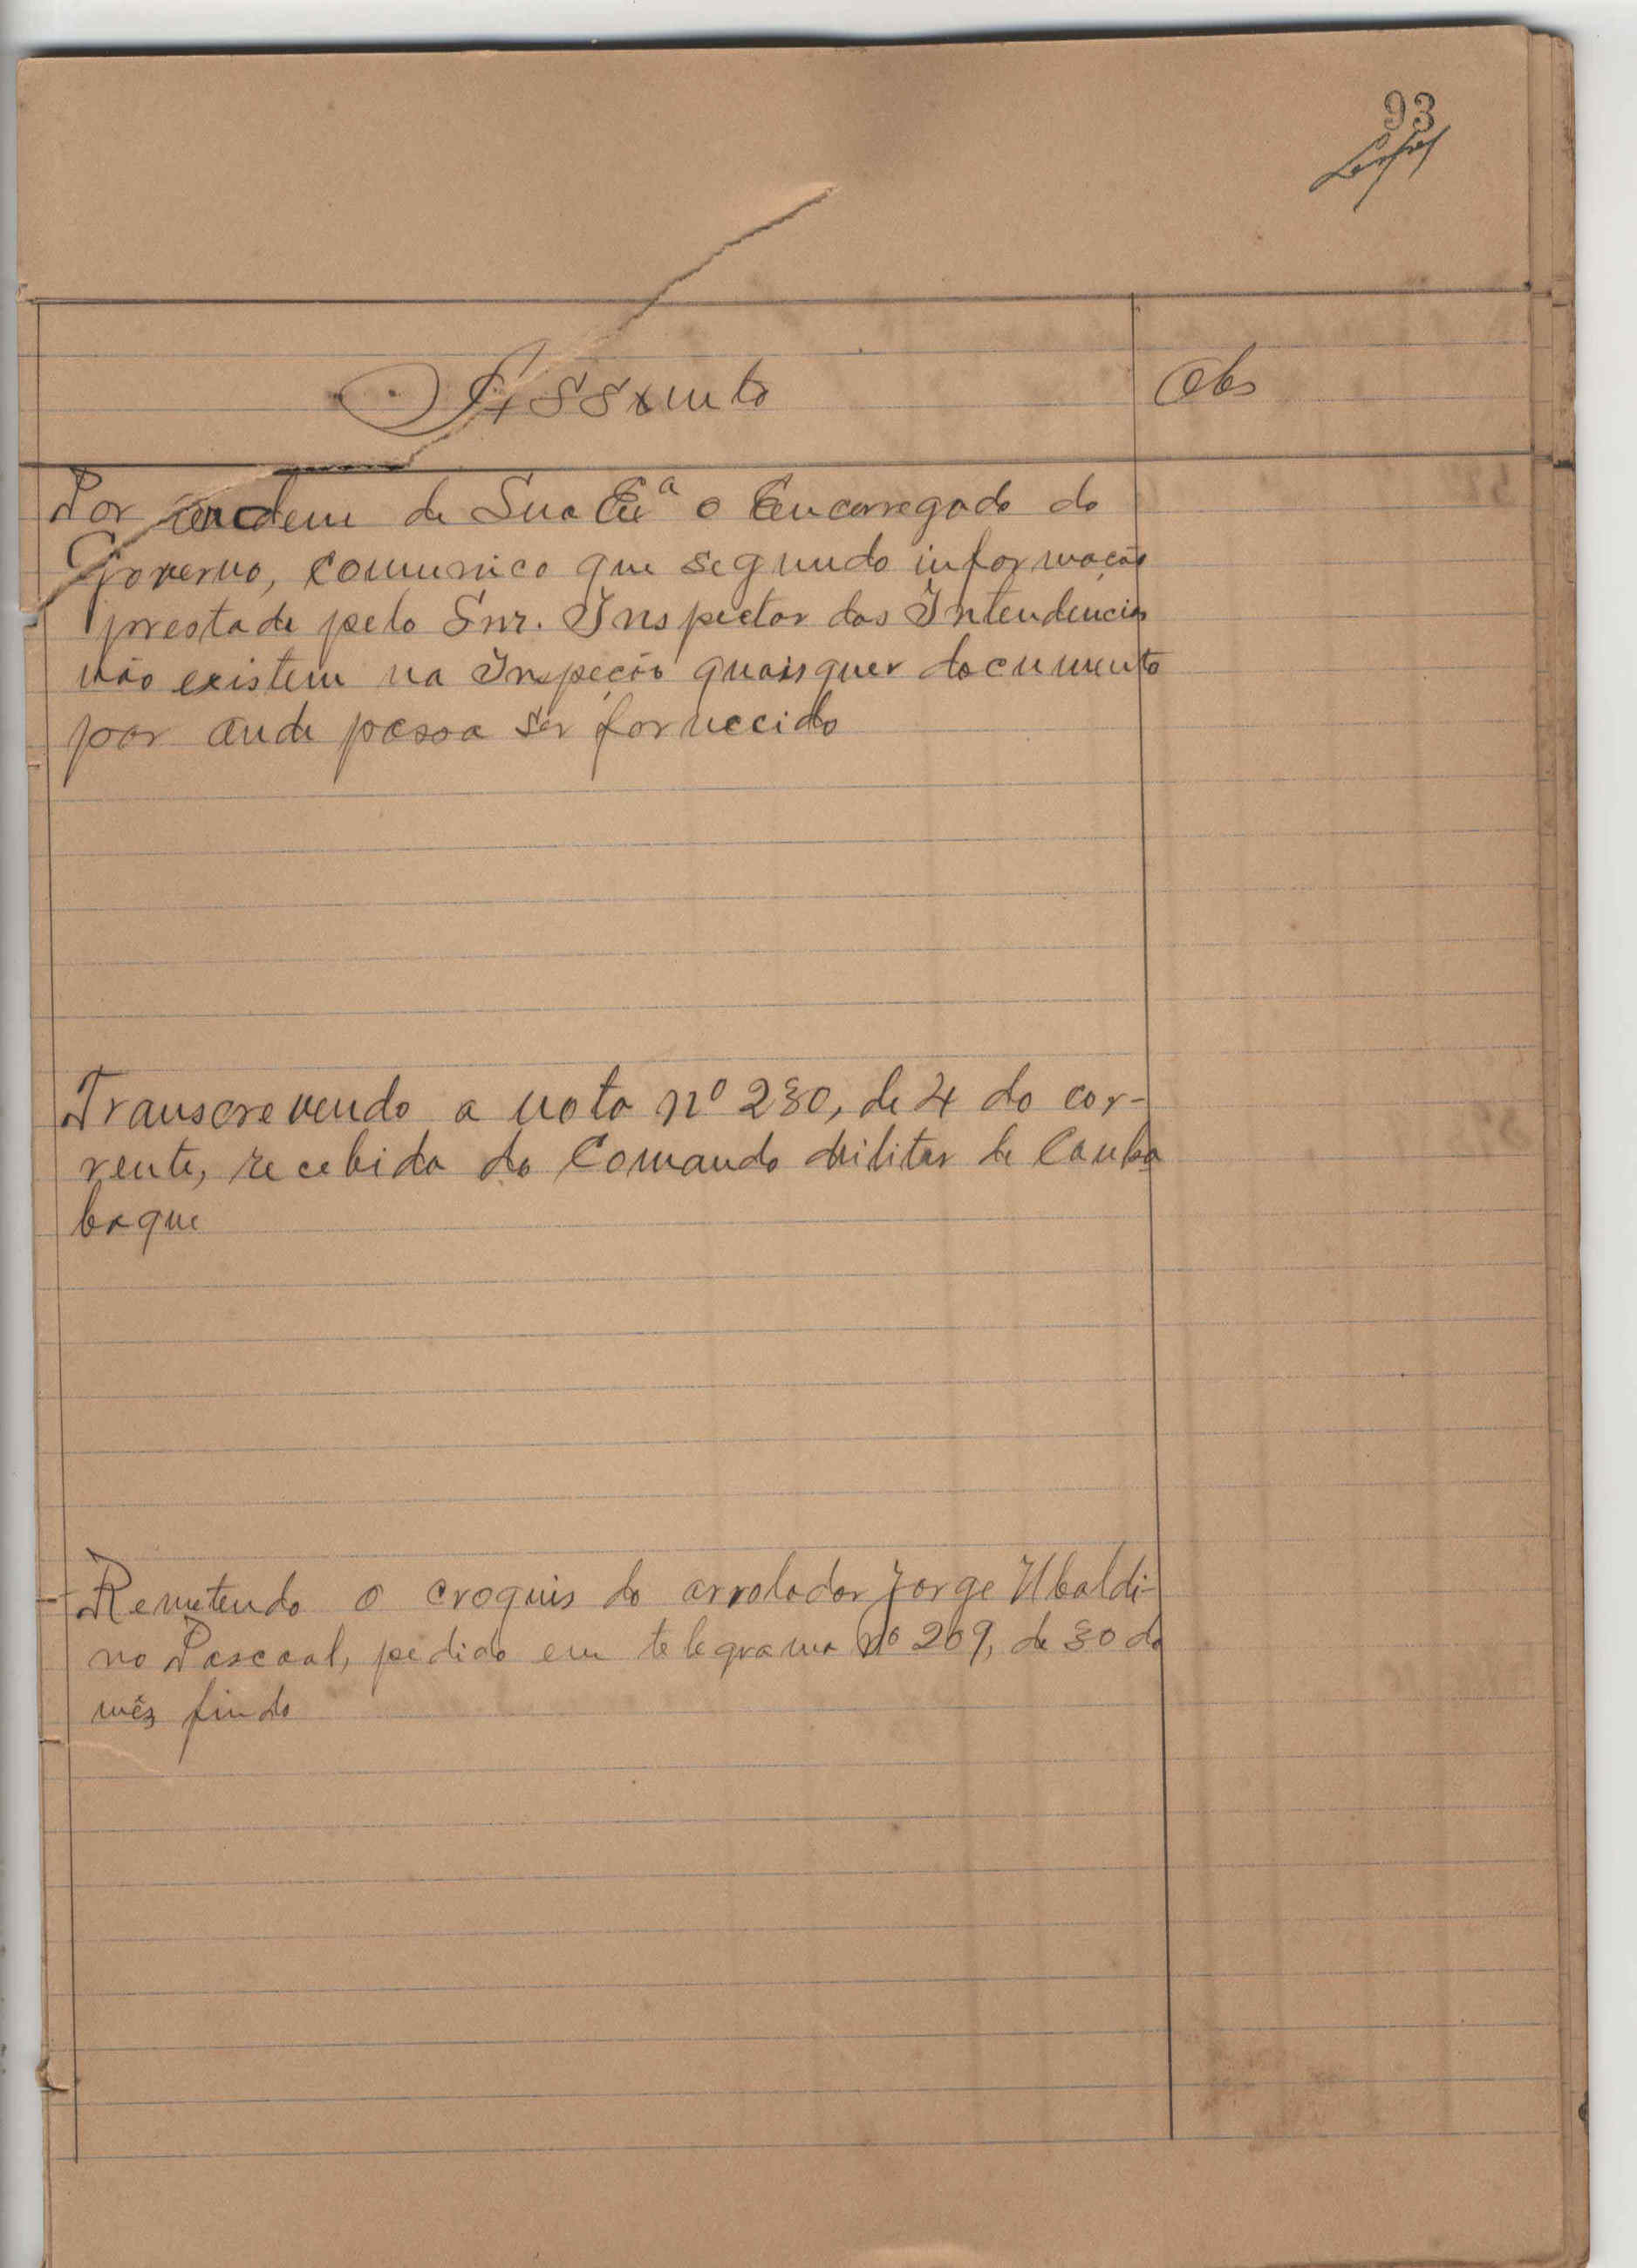 93
Assunto
Obs
Por ordem de Sua Exª o Encarregado do
Governo, comunico que segundo informação
prestada pelo Snr. Inspector das Intendencias
não existem na Inspeção quaisquer documento
por onde possa ser fornecido
Transcrevendo a nota nº 230, de 4 do cor-
rente, recebida do Comando Militar de Canba
baque
Remetendo o croquis do arrolador Jorge Ubaldi-
no Pascoal, pedido em telegrama nº 209, de 30 do
mês findo